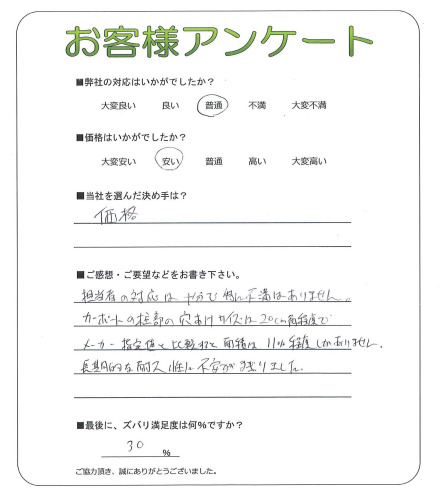 お客様アンケート
■弊社の対応はいかがでしたか?
大変良い 良い 普通 不満 大変不満
■価格はいかがでしたか?
大変安い 安い 普通 高い 大変高い
■当社を選んだ決め手は?
価格
■ご感想・ご要望などをお書き下さい。
担当者の対応は十分で特に不満はありません。
カーポートの柱部の穴あけサイズは20cm角程度で
メーカー指定値と比較すると面積は11%程度しかありません。
長期的な耐久性に不安があまりました。
■最後に、ズバリ満足度は何%ですか?
30 %
ご協力頂き、誠にありがとうございました。